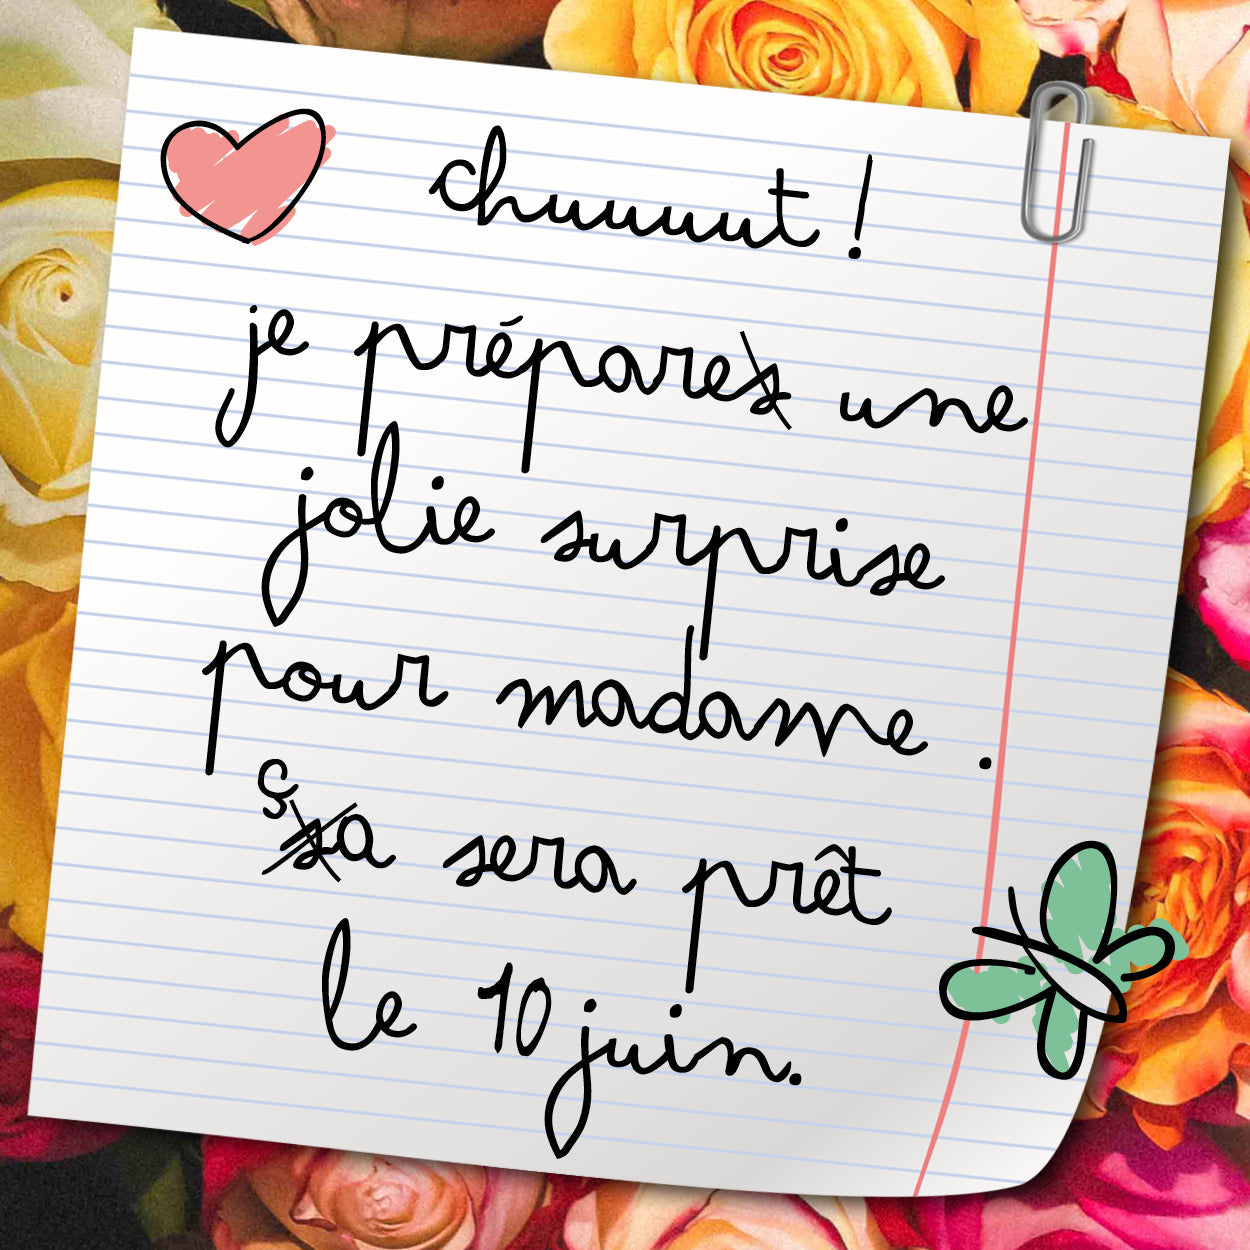 chuuuut !
je prépares une
jolie surprise
pour madame .
ça sera prêt
le 10 juin.